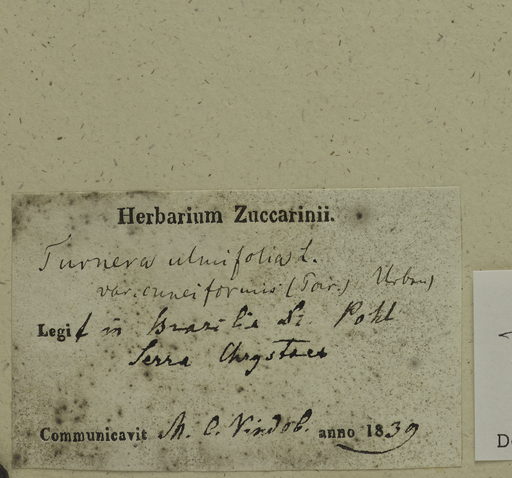 Herbarium Zuccarinii.
Turnera ulmifolia L.
var. cuneiformis (Poir.) Urban)
Legit in Brazilia Dr. Pohl
Serra Chrystaes
Communicavit M. C. Vindob. anno 1839
D